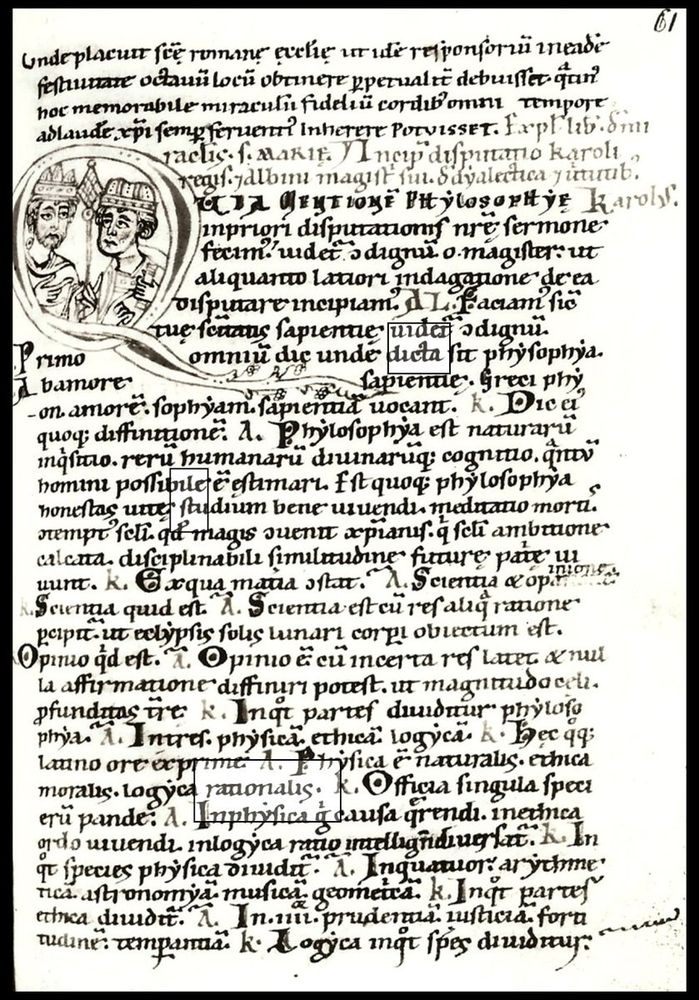 61
unde placuit scē romanę ecclię ut idē responsoriū in eadē
festiuitate octauū locū obtinere ppetualit debuisset. qtin
hoc memorabile miraculū fideliū cordib omni tempore
ad laudē xpi semp feruenti inherere potuisset. Expl lib
raclis. s. MARIE. Incip disputatio karoli
regis. ⁊ albini magist sui. d dyalectica ⁊ uirtutib.
QUIA MENTIONĒ PHYLOSOPHYĘ Karolus.
in priori disputationis nrę sermone
fecim. uidet ɔdignū o magister. ut
aliquanto latiori indagatione de ea
disputare incipiam. AL. Faciam sic
tuę scitatis sapientię uidet ɔdignū.
Primo omniū dic unde dicta sit physophya.
Ab amore sapientię. Greci phy
on amorē. sophyam. sapientiā uocant. k. Dic ei
quoq; diffinitionē. A. Phylosophya est naturarū
inqsitio. rerū humanarū diuinarūq; cognitio. qntū
homini possibile ē estimari. Est quoq; phylosophya
honestas uitę studium bene uiuendi. meditatio morti.
ɔtempt scli. qd magis ɔuenit xpianis. q scli ambitione
calcata. disciplinabili similitudine futurę patrię ui
uunt. k. Ex qua matia ɔstat. A. Scientia & opinione.
k. Scientia quid est. A. Scientia est cū res aliq ratione
pcipit. ut eclypsis solis lunari corpi obiectum est.
Opinio qd est. A. Opinio ē cū incerta res latet. & nul
la affirmatione diffiniri potest. ut magnitudo celi.
pfunditas trę k. Inqt partes diuiditur phyloso
phya. A. In tres. physicā. ethicā. logycā. k. Hęc qq;
latino ore exprime A. Physica ē naturalis. ethica
moralis. logyca rationalis. k. Officia singula speci
erū pande. A. In physica g causa qrendi. in ethica
ordo uiuendi. in logyca ratio intelligendi uersat. k. In
qt species physica diuidit. A. In quatuor. arythme
ticā. astronomyā. musicā. geometcā. k. Inqt partes
ethica diuidit. A. In .iiii. prudentiā. iusticiā. forti
tudinē. temperantiā. k. Logyca inqt spes diuiditur.